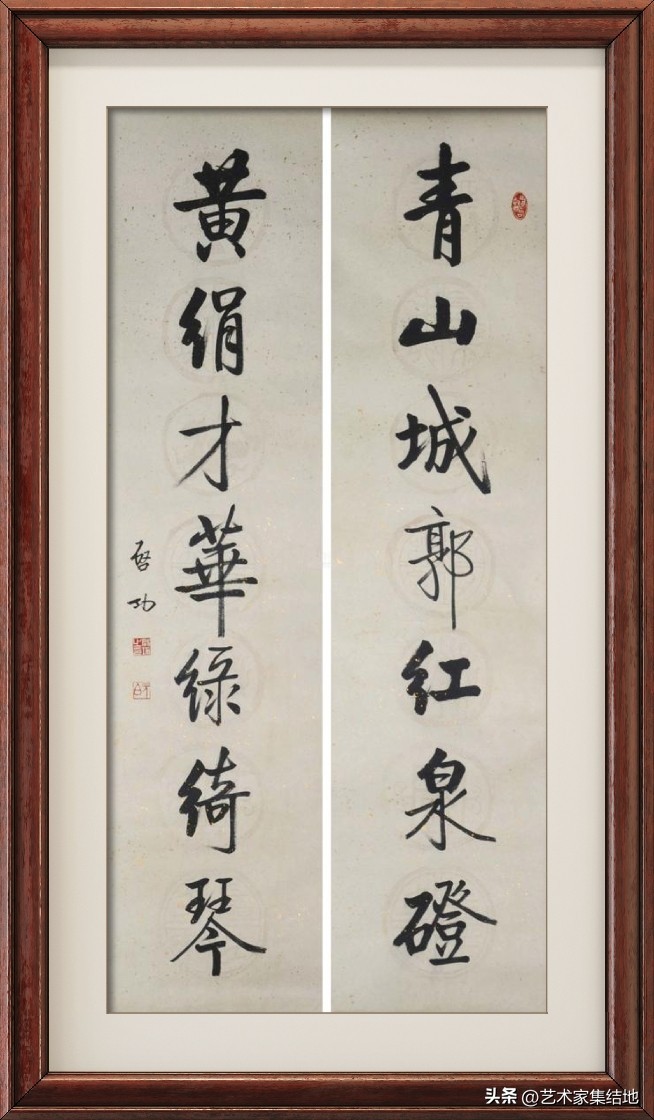 青山城郭红泉磴
黄絹才華綠綺琴
啓功
头条 @艺术家集结地